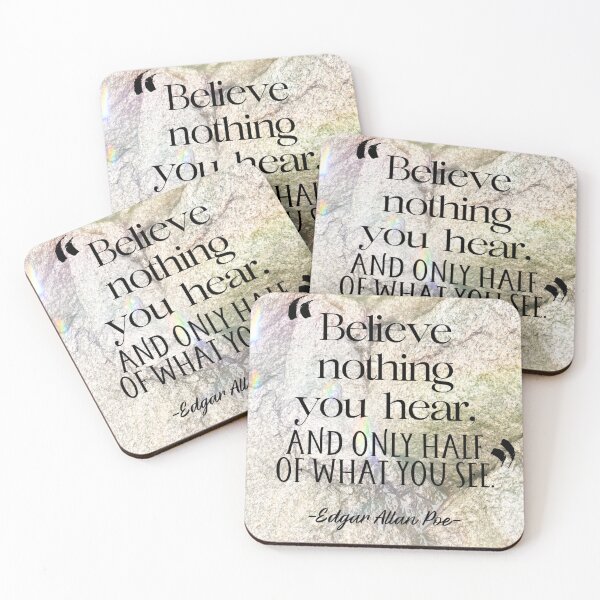 “ Believe
nothing
you hear.
AND ONLY HALF
“ Believe
nothing
you hear.
AND ONLY HALF
OF WHAT YOU SEE. ”
“ Believe
nothing
you hear.
AND ONLY HALF
OF WHAT YOU
-Edgar
“ Believe
nothing
you hear.
AND ONLY HALF
OF WHAT YOU SEE. ”
-Edgar Allan Poe-